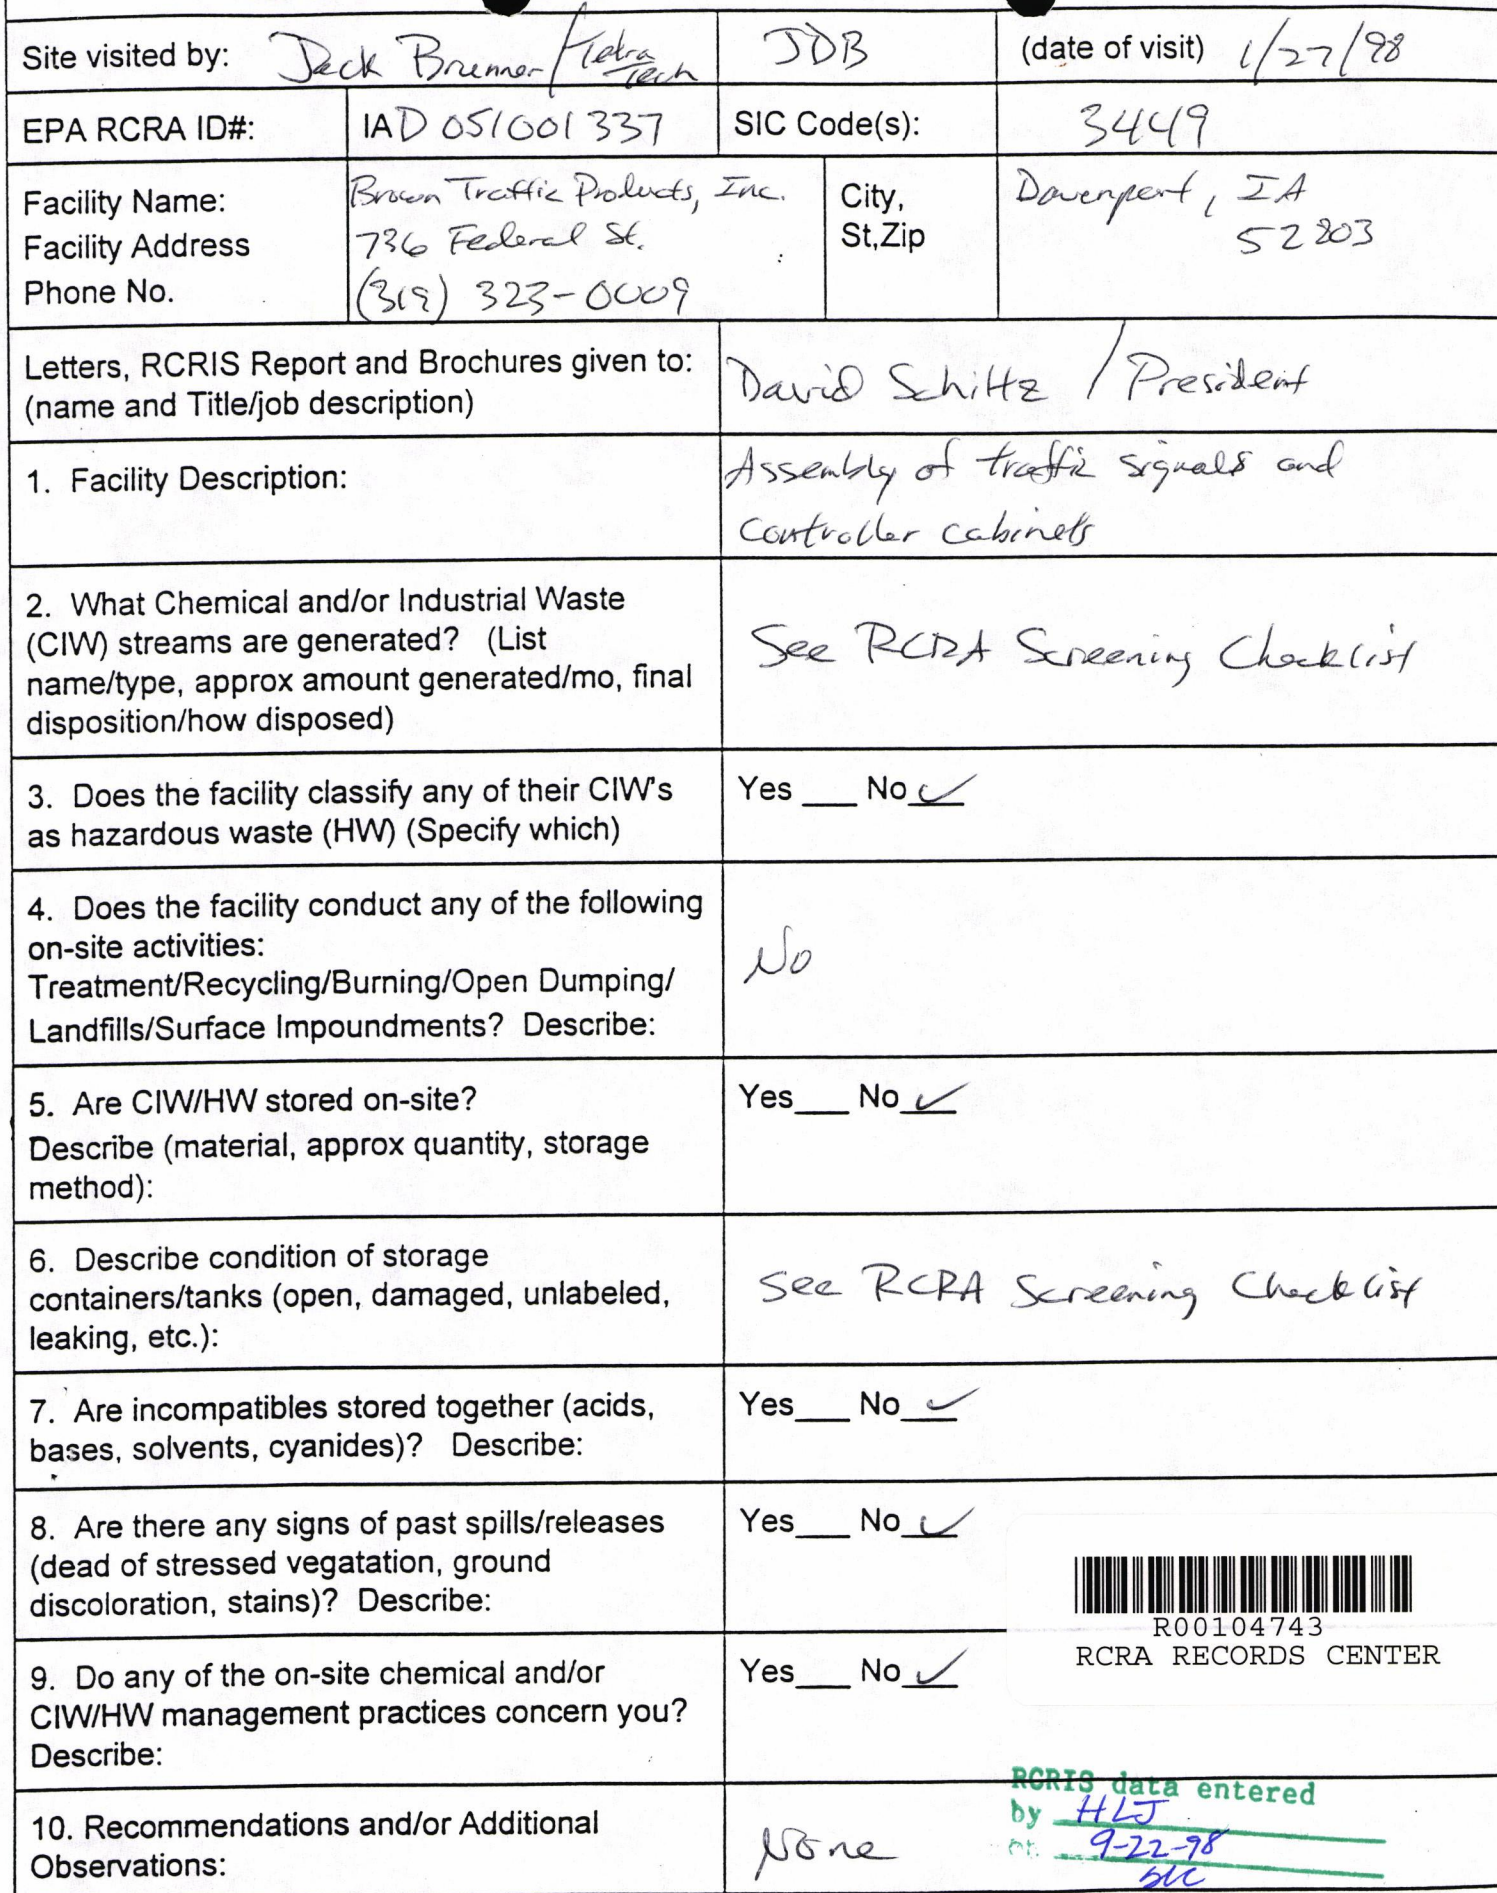 Site visited by: Jack Brunner/Tetra Tech JDB (date of visit) 1/27/98
EPA RCRA ID#: IAD 051001337 SIC Code(s): 3449
Facility Name: Brown Traffic Products, Inc. City, Davenport, IA
Facility Address 736 Federal St. St,Zip 52803
Phone No. (319) 323-0009
Letters, RCRIS Report and Brochures given to: David Schiltz / President
(name and Title/job description)
1. Facility Description: Assembly of traffic signals and
controller cabinets
2. What Chemical and/or Industrial Waste
(CIW) streams are generated? (List See RCRA Screening Checklist
name/type, approx amount generated/mo, final
disposition/how disposed)
3. Does the facility classify any of their CIW's Yes ___ No ✓
as hazardous waste (HW) (Specify which)
4. Does the facility conduct any of the following
on-site activities: No
Treatment/Recycling/Burning/Open Dumping/
Landfills/Surface Impoundments? Describe:
5. Are CIW/HW stored on-site? Yes___ No ✓
Describe (material, approx quantity, storage
method):
6. Describe condition of storage
containers/tanks (open, damaged, unlabeled, See RCRA Screening Checklist
leaking, etc.):
7. Are incompatibles stored together (acids, Yes___ No ✓
bases, solvents, cyanides)? Describe:
8. Are there any signs of past spills/releases Yes___ No ✓
(dead of stressed vegatation, ground
discoloration, stains)? Describe:
R00104743
RCRA RECORDS CENTER
9. Do any of the on-site chemical and/or Yes___ No ✓
CIW/HW management practices concern you?
Describe:
10. Recommendations and/or Additional None
Observations:
RCRIS data entered
by HLJ
on 9-22-98